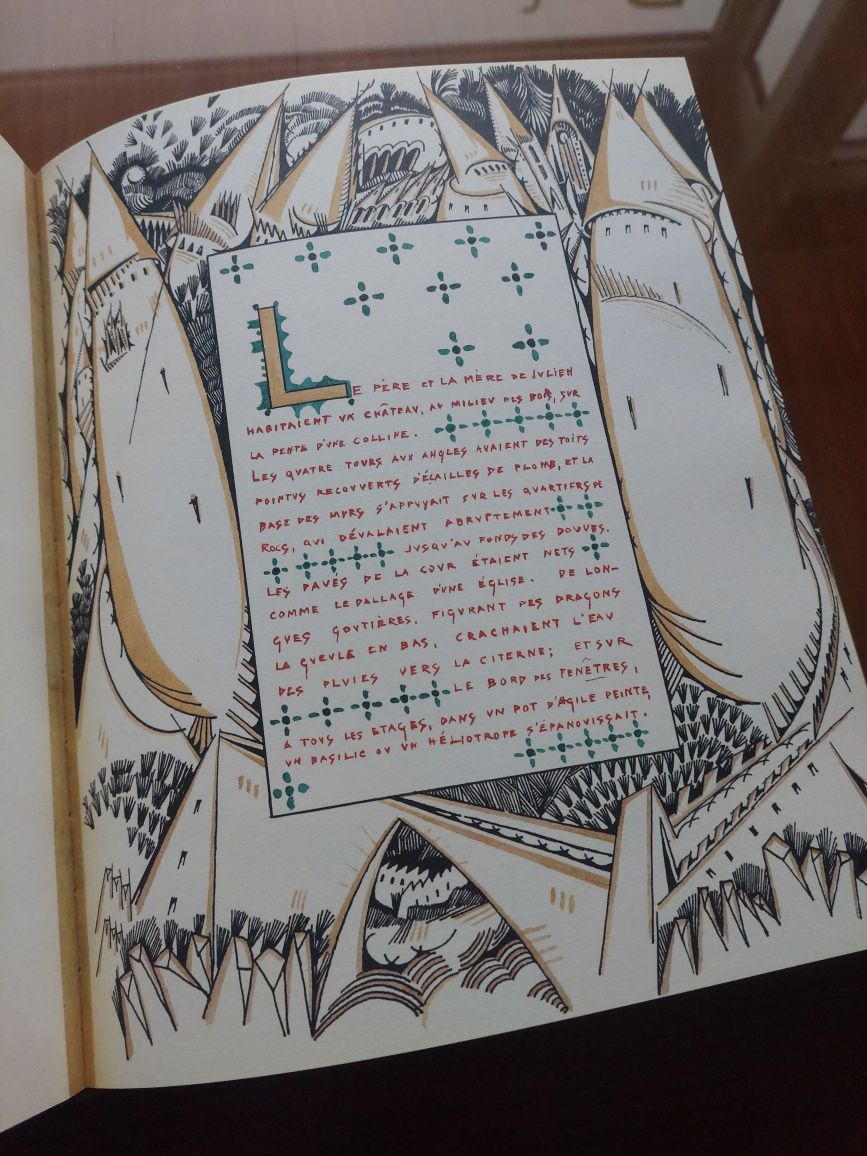 LE PÈRE ET LA MÈRE DE JULIEN
HABITAIENT UN CHÂTEAU, AU MILIEU DES BOIS, SUR
LA PENTE D'UNE COLLINE.
LES QUATRE TOURS AUX ANGLES AVAIENT DES TOITS
POINTUS RECOUVERTS D'ÉCAILLES DE PLOMB, ET LA
BASE DES MURS S'APPUYAIT SUR LES QUARTIERS DE
ROCS, QUI DÉVALAIENT ABRUPTEMENT
JUSQU'AU FONDS DES DOUVES.
LES PAVÉS DE LA COUR ÉTAIENT NETS
COMME LE DALLAGE D'UNE ÉGLISE. DE LON-
GUES GOUTIÈRES, FIGURANT DES DRAGONS
LA GUEULE EN BAS, CRACHAIENT L'EAU
DES PLUIES VERS LA CITERNE; ET SUR
LE BORD DES FENÊTRES,
A TOUS LES ETAGES, DANS UN POT D'AGILE PEINTE,
UN BASILIC OU UN HÉLIOTROPE S'ÉPANOUISSAIT.